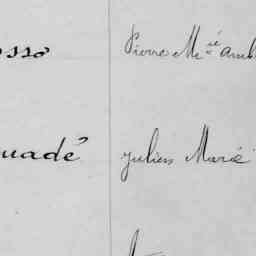 osso Pierre M.ie amb
uadé Julien Marié